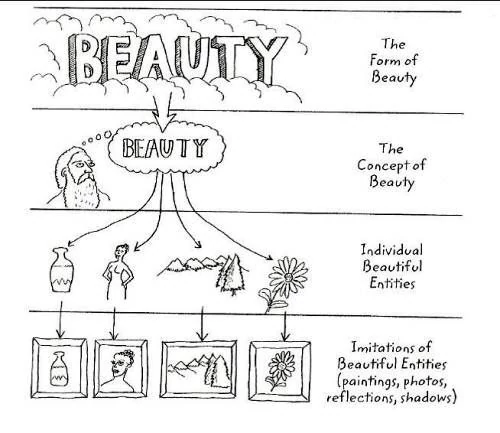 BEAUTY
The
Form of
Beauty
BEAUTY
The
Concept of
Beauty
Individual
Beautiful
Entities
Imitations of
Beautiful Entities
(paintings, photos,
reflections, shadows)